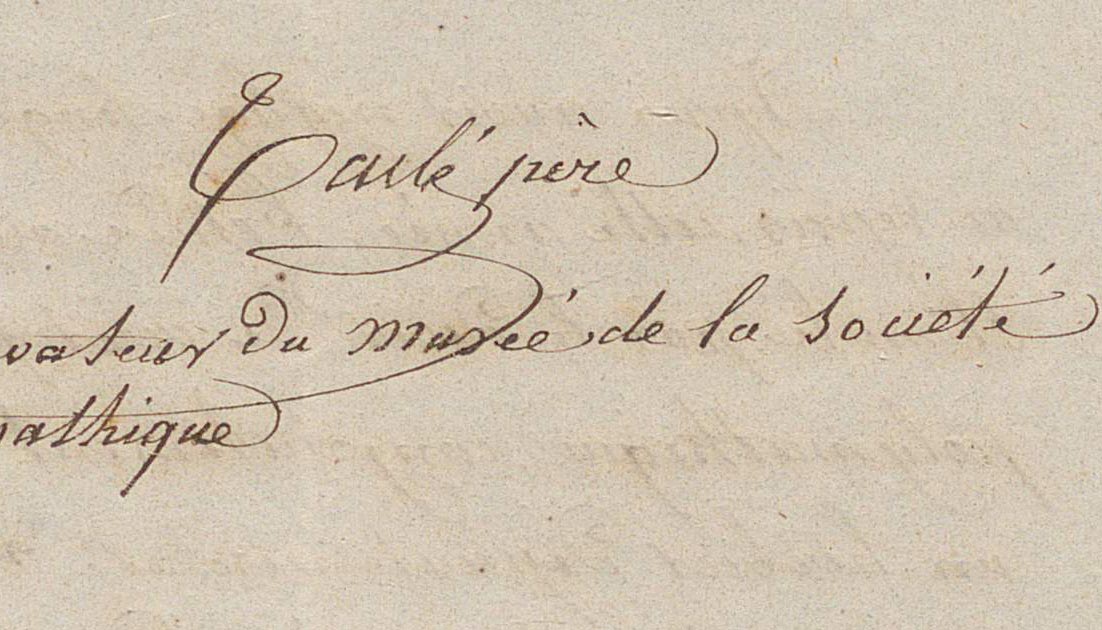 Taslé père
vateur du musée de la société
athique